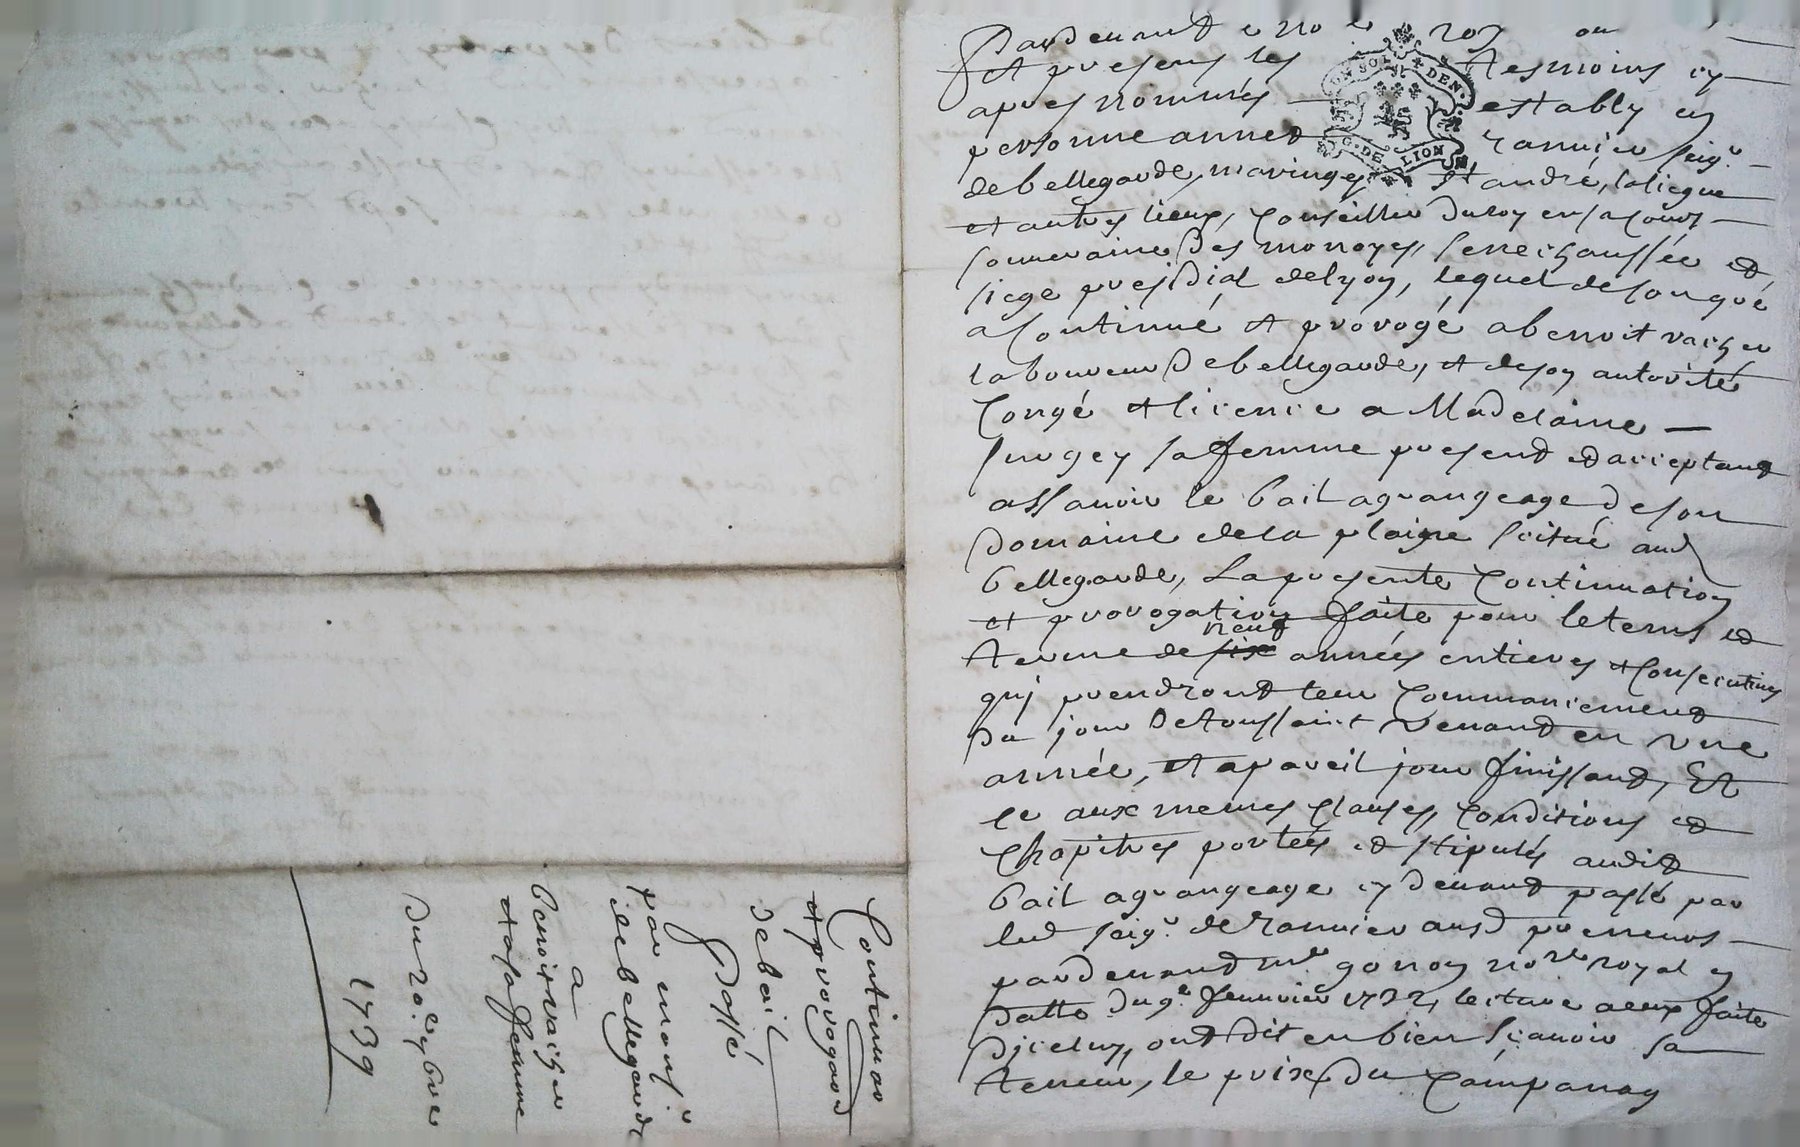 Pardevant le no.re roy. ou
et presens les tesmoins cy
apres nommés estably en
personne annet ranvier seig.r
de bellegarde, maringes St andré, la liegue
et autres lieux, Conseiller du roy en sa Cour
souveraine des monoyes, senechaussée et
siege presidial de lyon, lequel de son gré
a Continué et prorogé a benoit vacher
laboureur de bellegarde, et de son autorité
Congé et licence a Madelaine
sa femme present et acceptant
assavoir le bail a grangeage de son
domaine de la plaigne scitué aud
bellegarde, La presente Continuation
et prorogation faite pour le tems et
terme de six neuf années entieres et Consecutives
qui prendront leur Commancement
du jour de toussaint Venant en une
année, et a pareil jour finissant, Et
ce aux memes clauses, conditions et
Chapitres portées et stipulés audit
bail a grangeage cy devant passé par
led seig.r de ranvier ausd preneurs
pardevant me gonon no.re royal en
datte du 9.e Fevrier 1732, lecture a eux faite
d'jceluy, ont dit en bien scavoir sa
teneur, le prix du Campanag
DE LION
Continuaõn
et prorogaõn
de bail
Passé
par mons.r
de bellegarde
a
Benoit vacher
et a sa femme
Du 20.e 8bre
1739